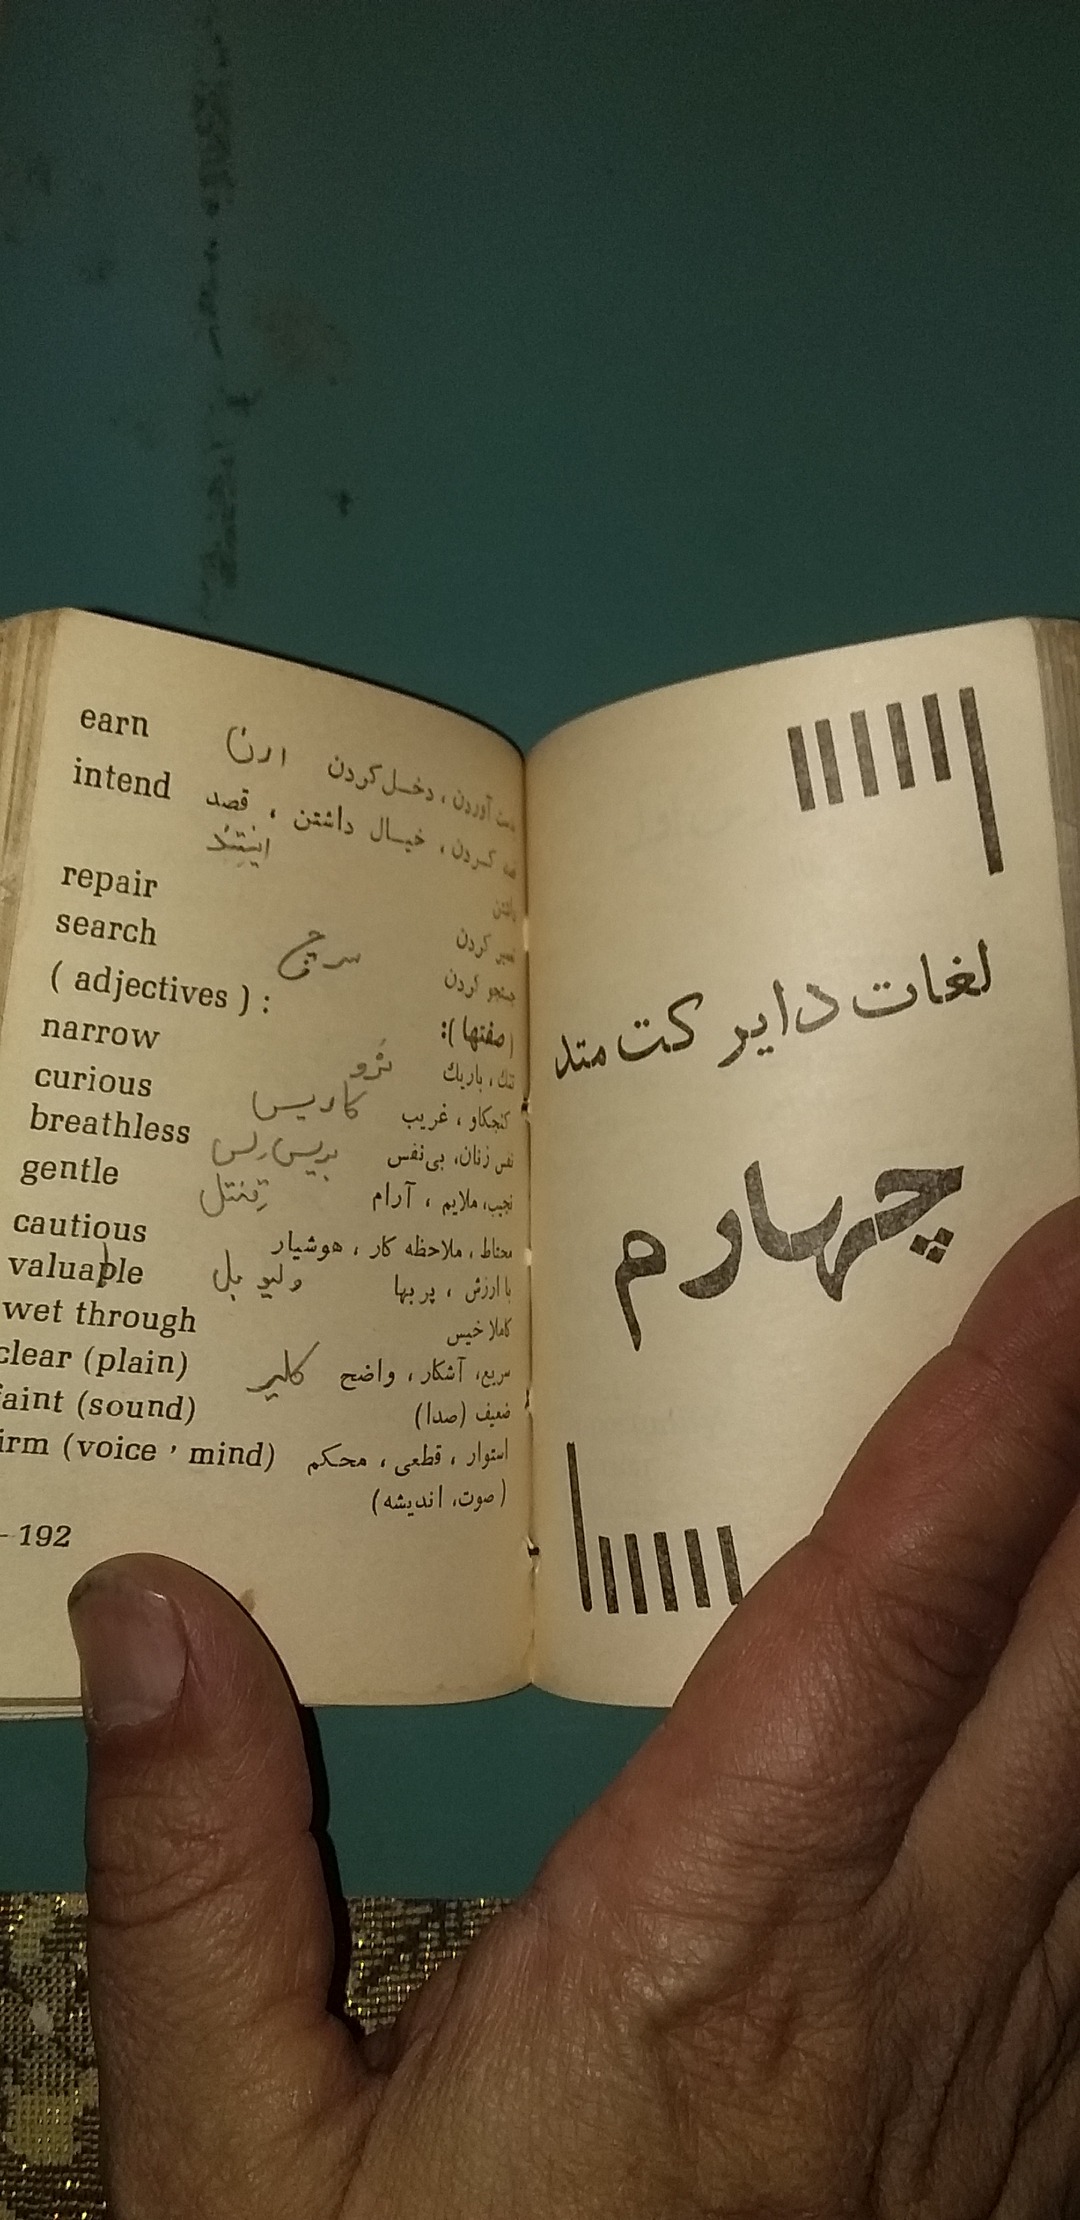 earn ارن ، دخل کردن
intend کردن ، خیال داشتن ، قصد
اینتند
داشتن
repair کردن
search سرچ جستجو کردن
( adjectives ) : (صفتها):
narrow نرو تنگ ، باریك
curious کاریس کنجکاو ، غریب
breathless بریس لس نفس زنان، بی‌نفس
gentle نجیب، ملایم ، آرام
cautious محتاط ، ملاحظه کار ، هوشیار
valuable ولیو بل با ارزش ، پر بها
wet through کاملا خیس
clear (plain) کلیر سریع، آشکار ، واضح
faint (sound) ضعیف (صدا)
firm (voice , mind) استوار ، قطعی ، محکم
(صوت، اندیشه)
– 192
لغات دایر کت متد
چهارم